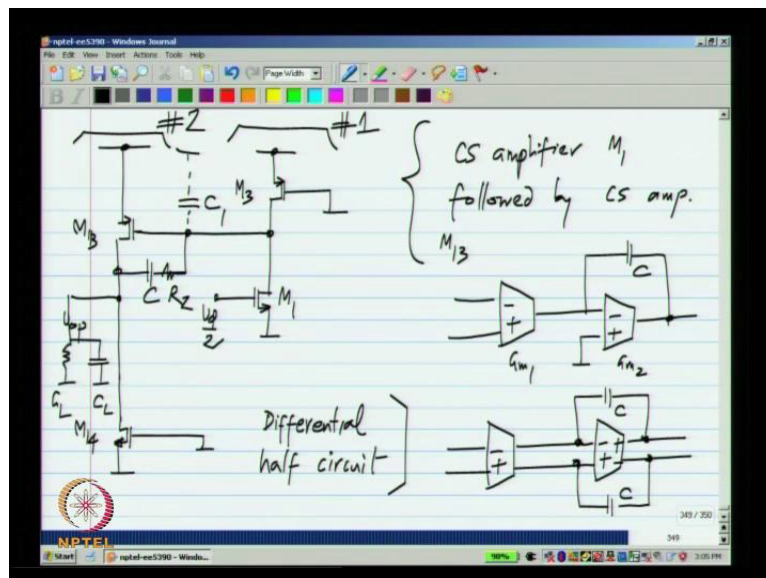 nptel-ee5390 - Windows Journal
File Edit View Insert Actions Tools Help
Page Width
B I
#2 #1
M3
C1
M13
C RZ
M1
GL CL
M14
CS amplifier M1
followed by CS amp.
M13
C
- +
Gm1
- +
Gm2
Differential
half circuit
C
- +
+ -
C
349 / 350
349
NPTEL
Start nptel-ee5390 - Windo...
90%
3:05 PM